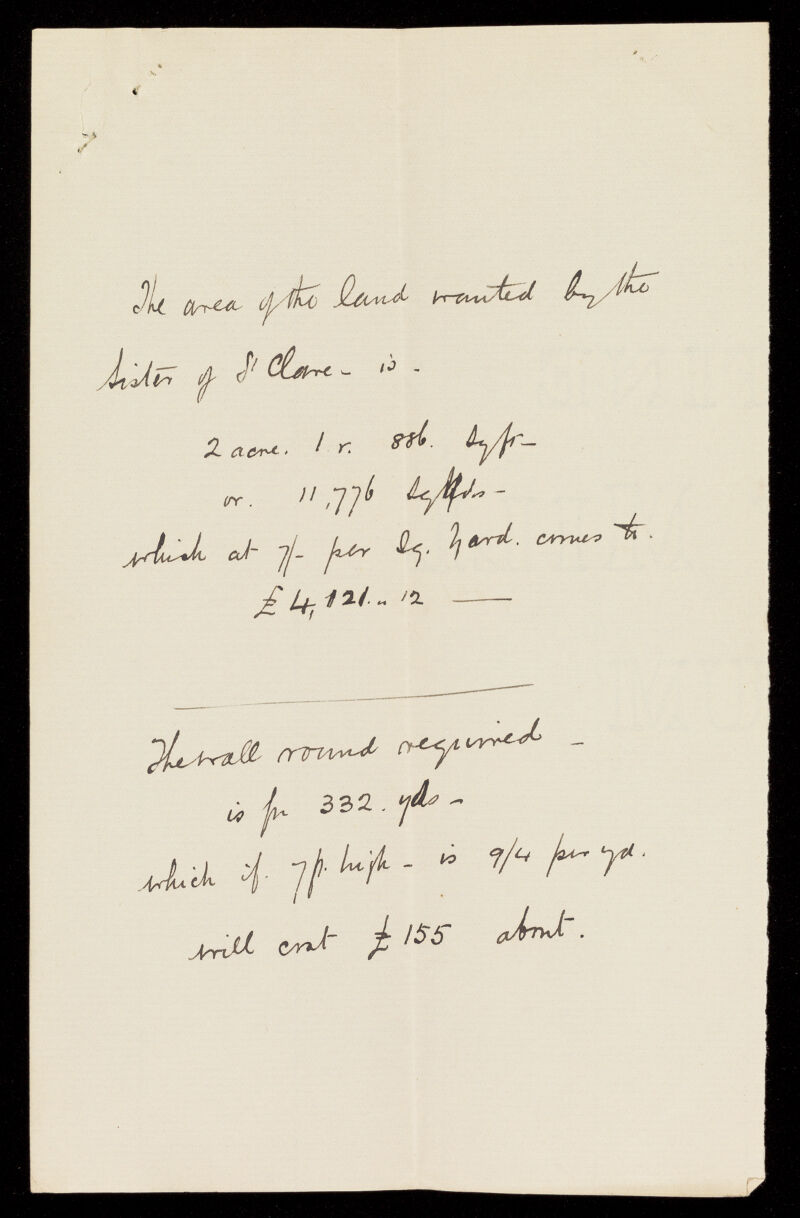 The area of the land wanted by the
Sister of St Clare - is -
2 acre. 1 r. 886. Sq ft -
or. 11,776 Sq yds -
which at 7/- per Sq. Yard. comes to.
£ 4,121 .. 12 —
The wall round required -
is for 332. yds -
which if. 7 ft. high - is 9/4 per yd.
will cost £ 155 about.